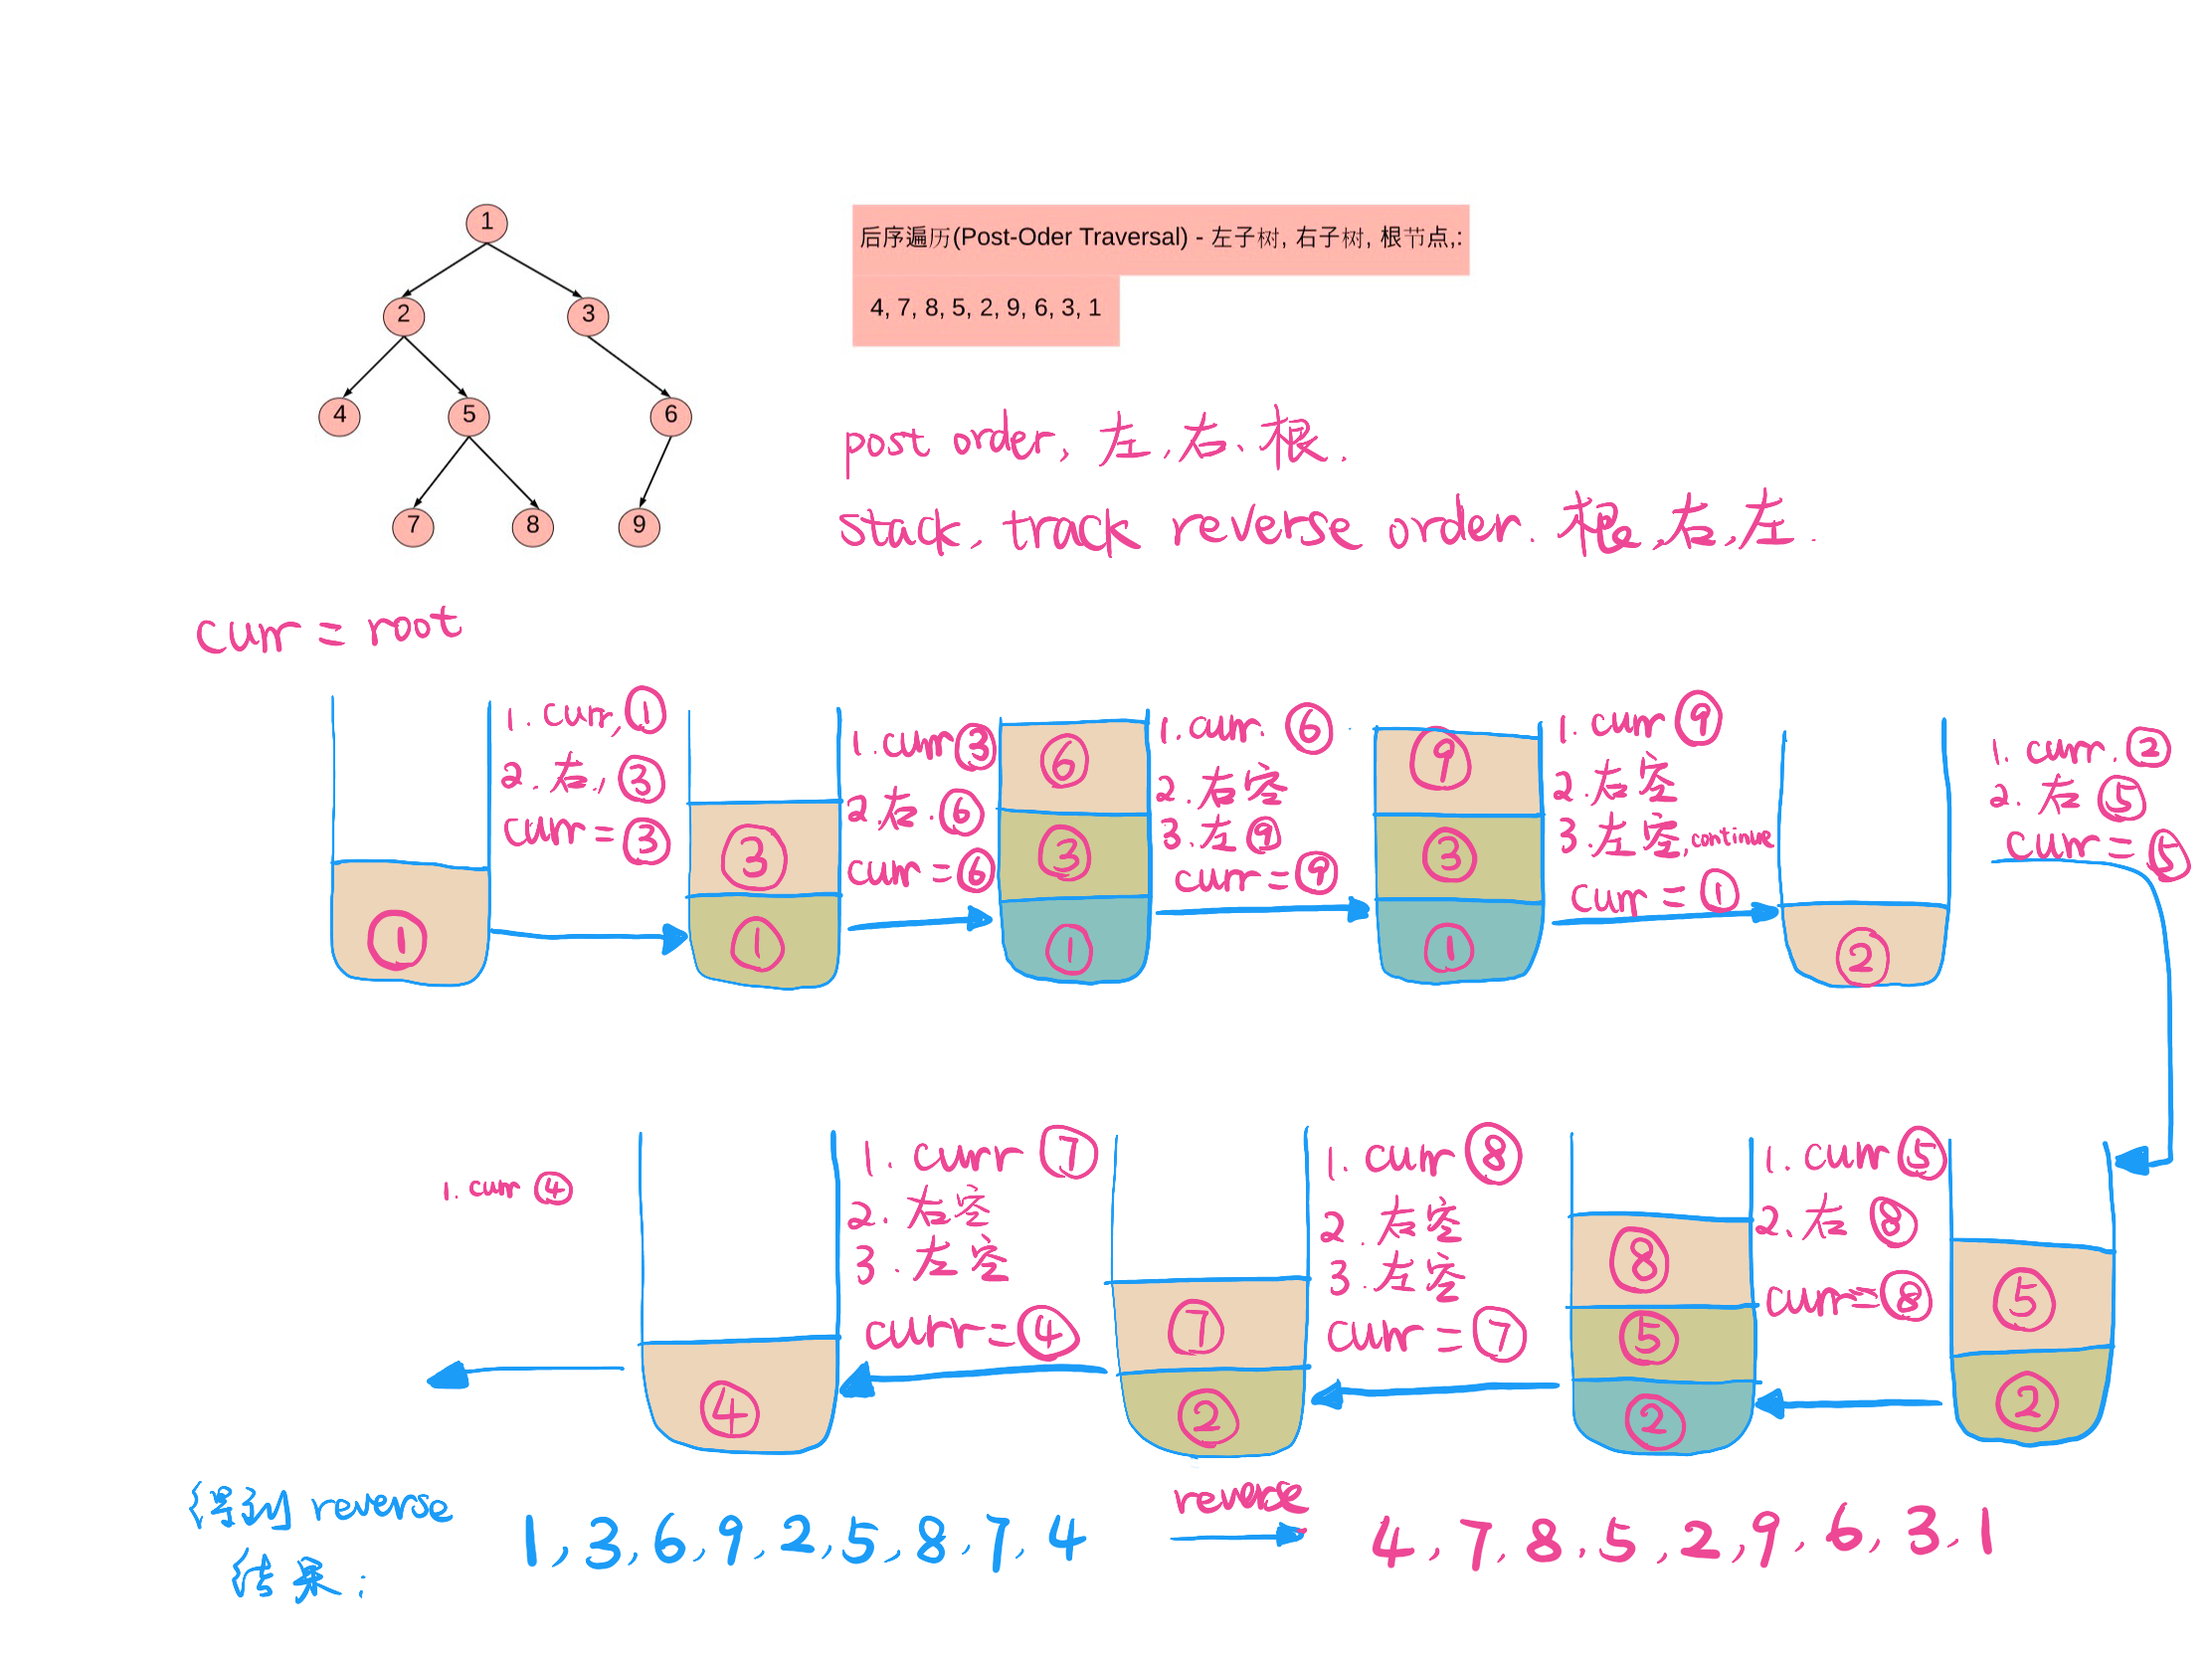 1
2 3
4 5 6
7 8 9
后序遍历(Post-Oder Traversal) - 左子树, 右子树, 根节点,:
4, 7, 8, 5, 2, 9, 6, 3, 1
post order, 左,右、根.
stack, track reverse order. 根,右,左.
curr = root
1
1. curr, ①
2. 右, ③
curr = ③
③
①
1. curr ③
2. 右. ⑥
curr = ⑥
⑥
③
①
1. curr. ⑥
2. 右空
3. 左⑨
curr = ⑨
⑨
③
①
1. curr ⑨
2. 右空
3. 左空, continue
curr = ①
②
1. curr. ②
2. 右 ⑤
curr = ⑤
⑤
②
1. curr ⑤
2. 右 ⑧
curr = ⑧
⑧
⑤
②
1. curr ⑧
2. 右空
3. 左空
curr = ⑦
⑦
②
1. curr ⑦
2. 右空
3. 左空
curr = ④
④
1. curr ④
得到 reverse
结果:
1, 3, 6, 9, 2, 5, 8, 7, 4
reverse
4, 7, 8, 5, 2, 9, 6, 3, 1